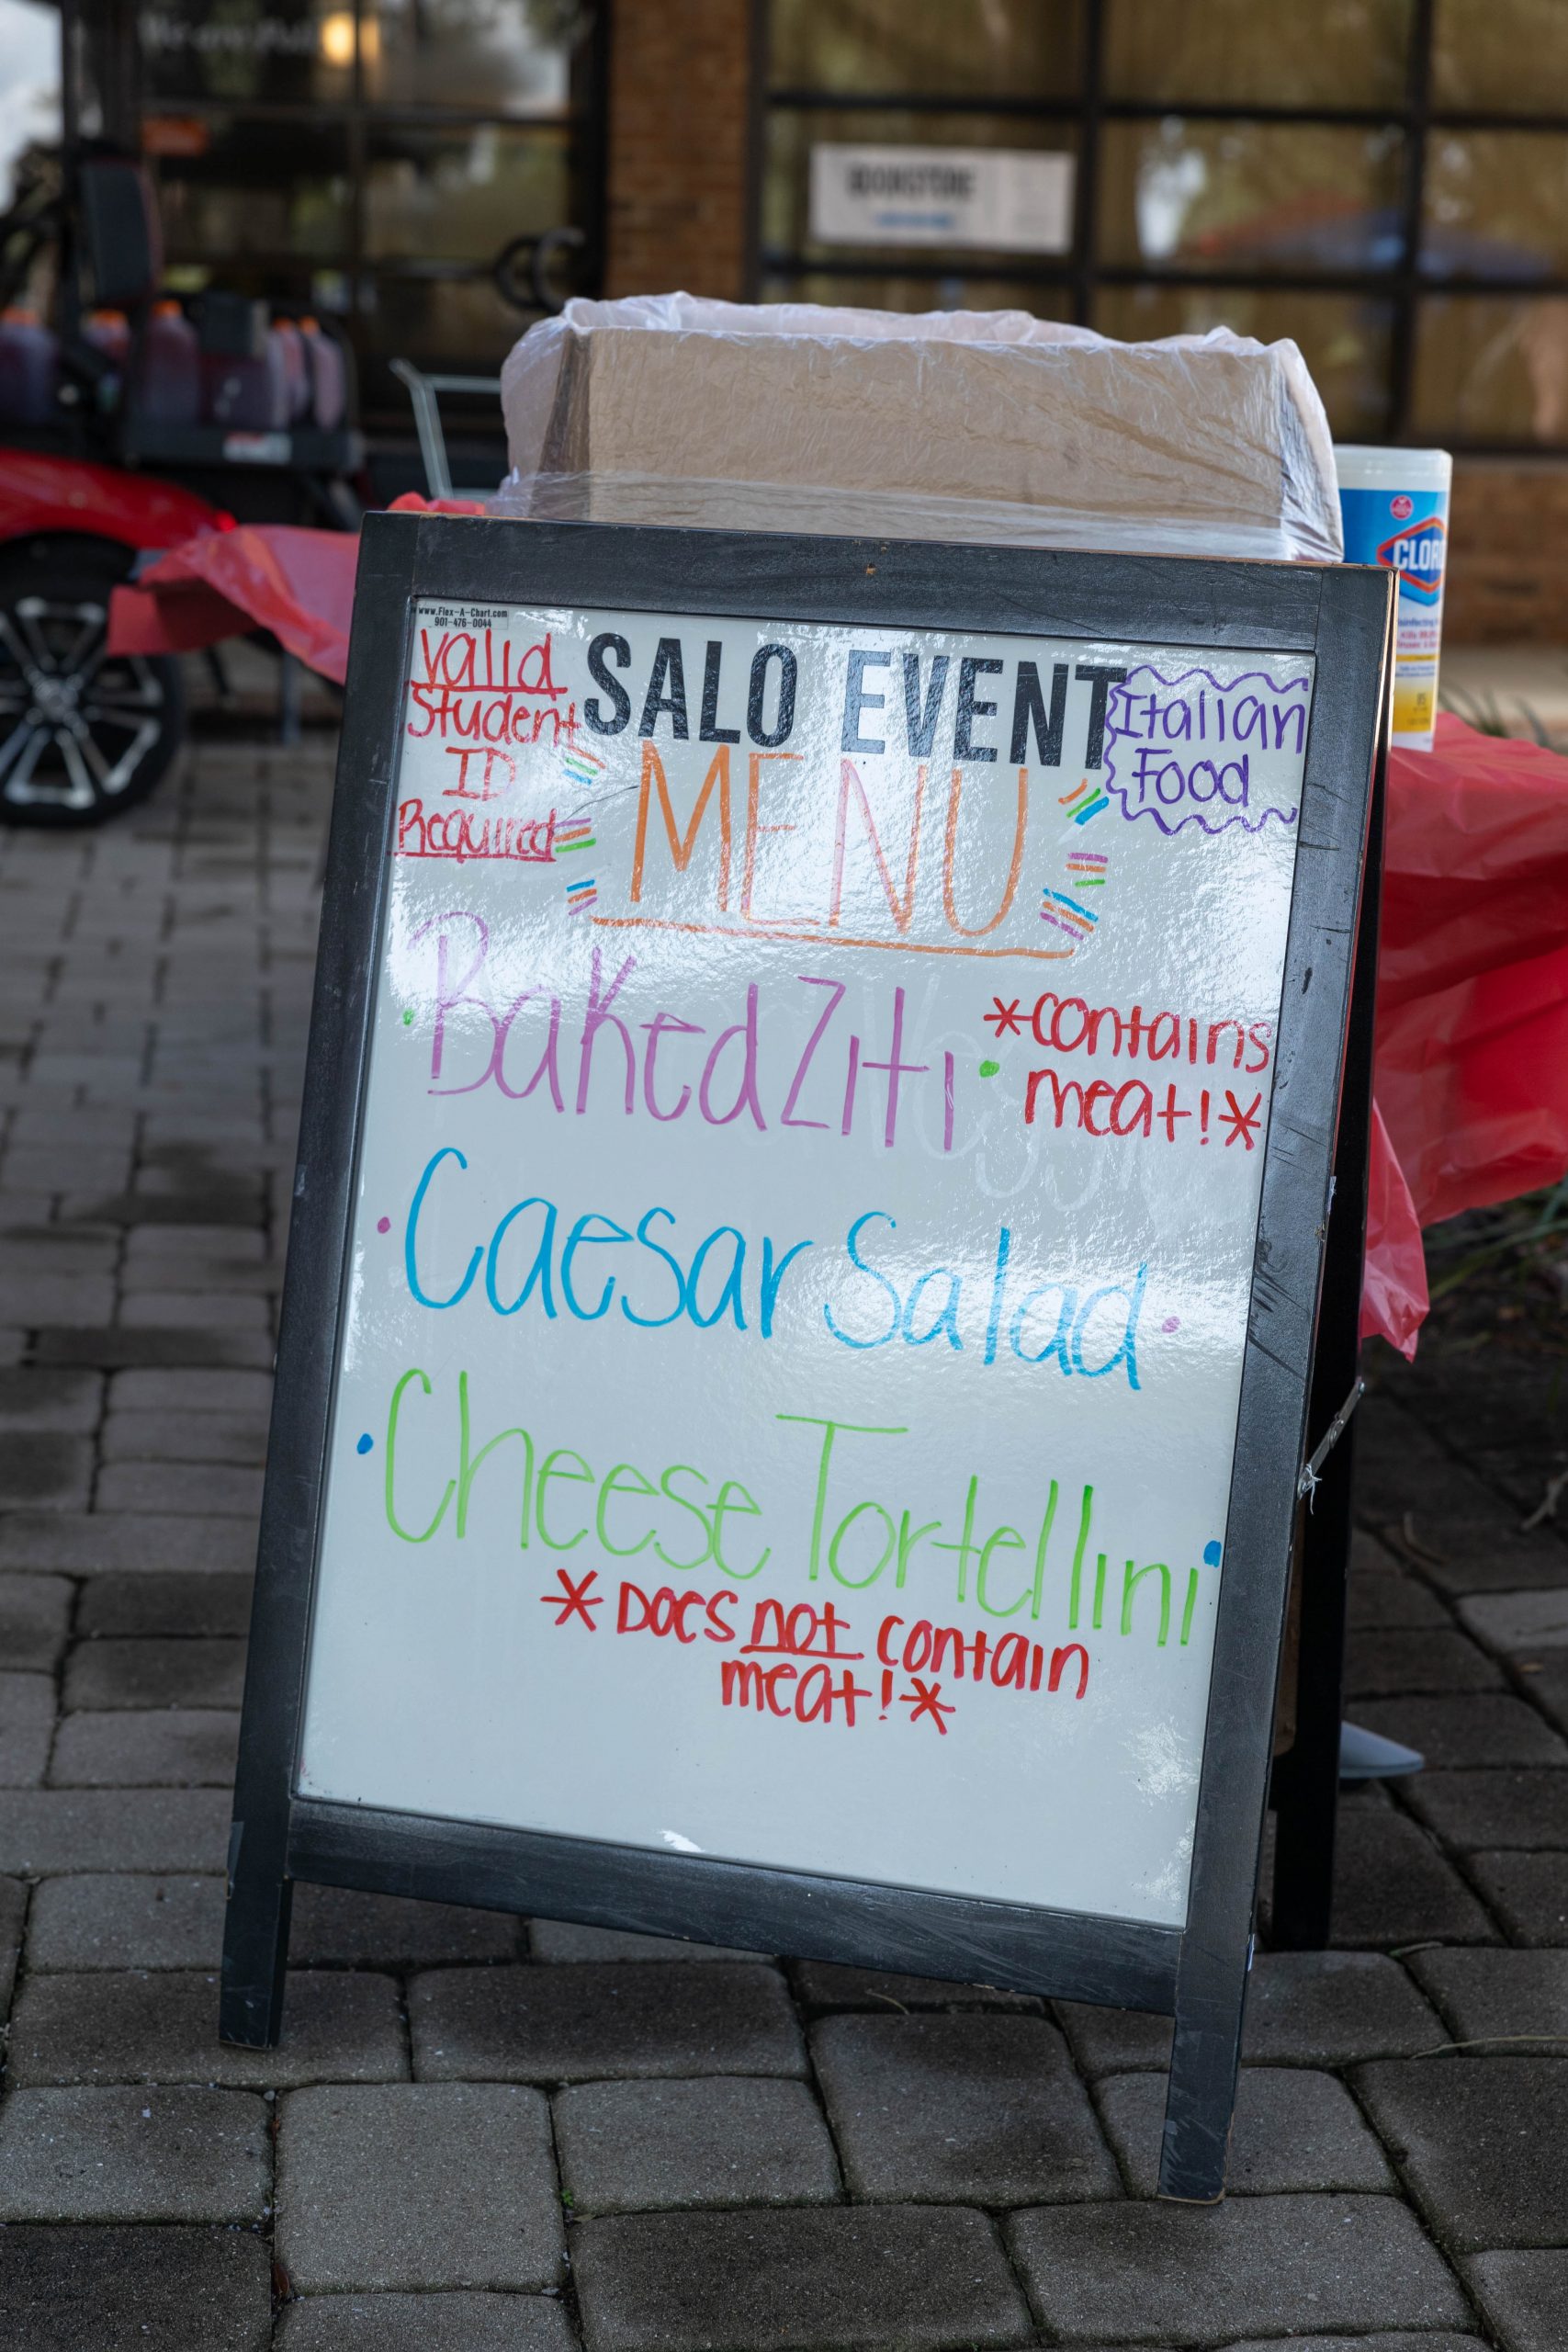 BOOKSTORE
CLOR
www.Flex-A-Chart.com
901-476-0044
Valid
Student
ID
Required
SALO EVENT
MENU
Italian
Food
• Baked Ziti •
*contains
meat!*
• Caesar Salad •
• Cheese Tortellini •
*Does not contain
meat!*